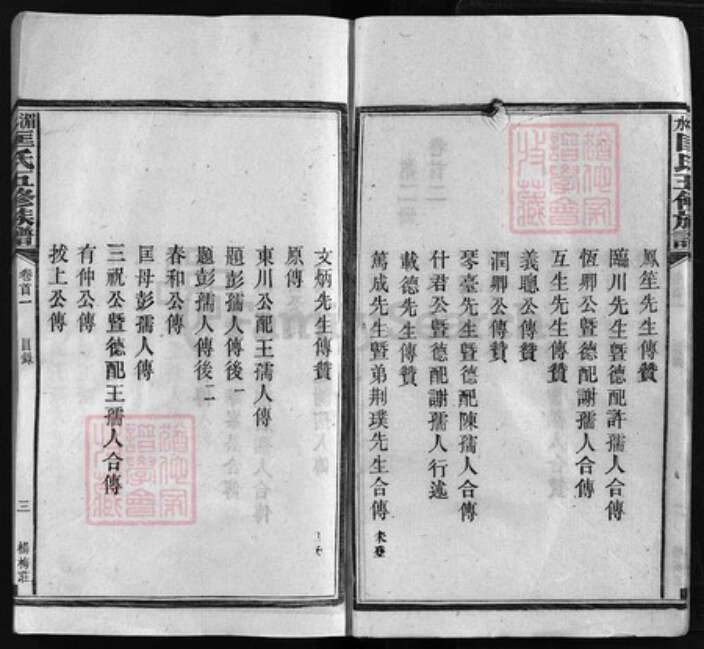 鳳笙先生傳贊
臨川先生暨德配許孺人合傳
恆卿公暨德配謝孺人合傳
互生先生傳贊
義聰公傳贊
潤卿公傳贊
琴臺先生暨德配陳孺人合傳
什君公暨德配謝孺人行述
載德先生傳贊
萬成先生暨弟荆璞先生合傳
文炳先生傳贊
原傳
東川公配王孺人傳
題彭孺人傳後一
題彭孺人傳後二
春和公傳
匡母彭孺人傳
三祝公暨德配王孺人合傳
有仲公傳
拔上公傳
匡氏五修族譜
卷首一
目錄
三
楊梅莊